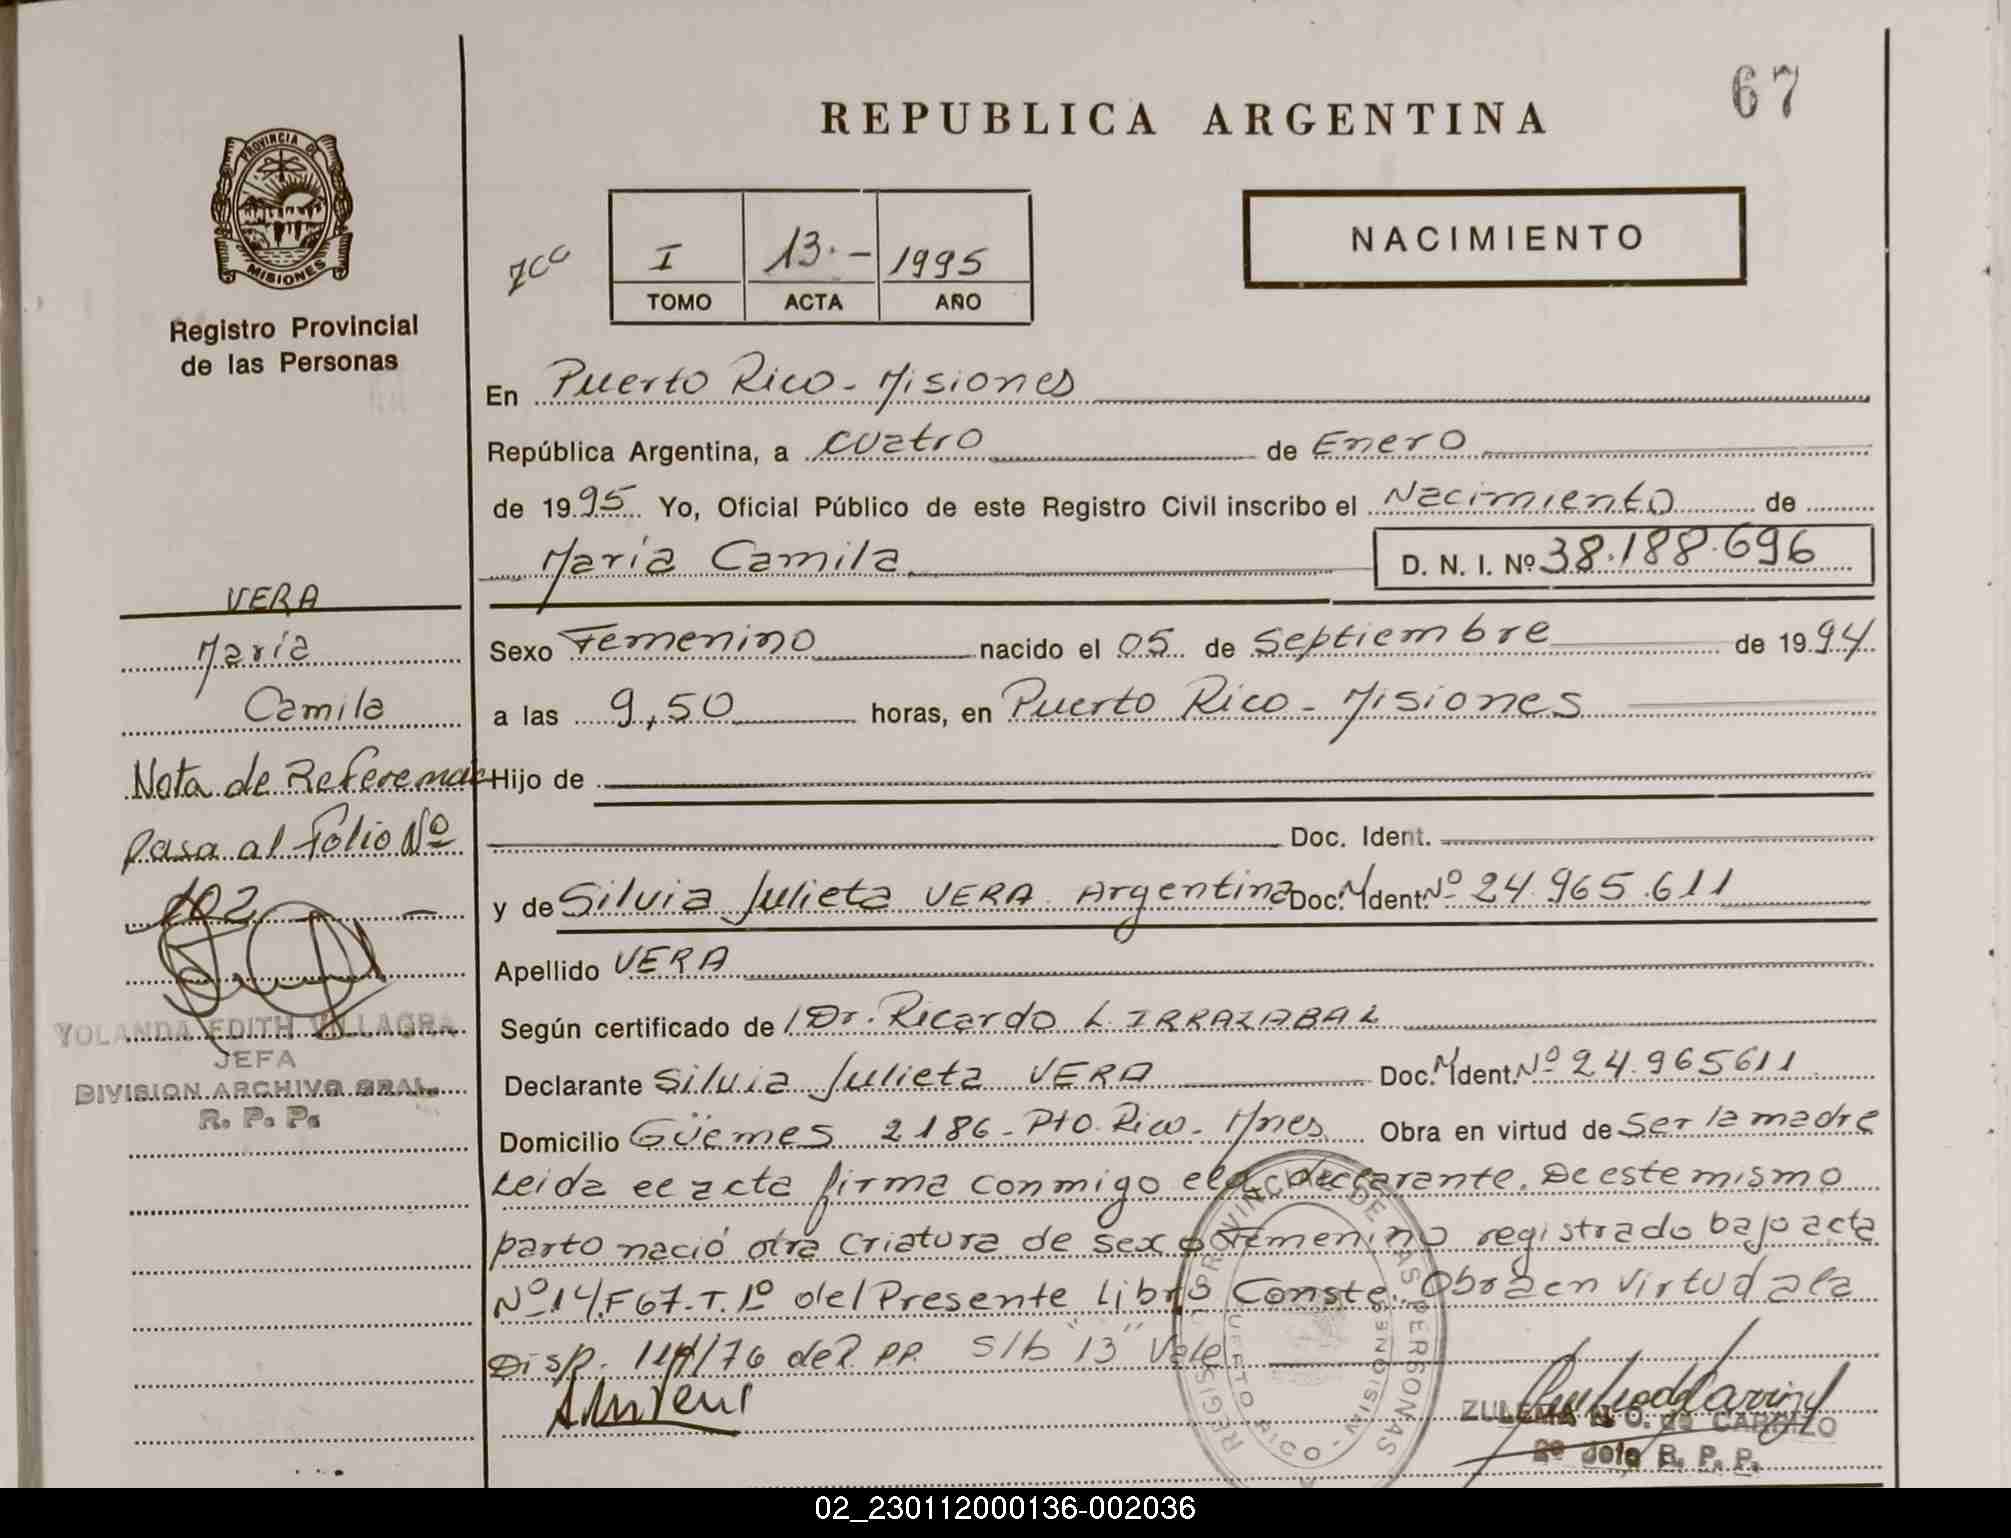 67
REPUBLICA ARGENTINA
PROVINCIA DE
MISIONES
Registro Provincial
de las Personas
I 13.- 1995
TOMO ACTA AÑO
NACIMIENTO
En Puerto Rico - Misiones
República Argentina, a cuatro de Enero
de 1995 Yo, Oficial Público de este Registro Civil inscribo el Nacimiento de
María Camila D. N. I. Nº 38.188.696
Sexo Femenino nacido el 05 de Septiembre de 1994
a las 9,50 horas, en Puerto Rico - Misiones
Hijo de
Doc. Ident.
y de Silvia Julieta VERA Argentina Doc. M Ident. Nº 24.965.611
Apellido VERA
Según certificado de Dr. Ricardo L. IRRAZABAL
Declarante Silvia Julieta VERA Doc. M Ident. Nº 24.965611
Domicilio Güemes 2186 - Pto. Rico - Mnes Obra en virtud de Ser la madre
Leida el acta firma conmigo el declarante. De este mismo
parto nació otra criatura de sexo Femenino registrado bajo acta
Nº 14.F67.T.1º del Presente libro Conste. Obra en Virtud a la
Disp. /76 de R.PP. S/b "13" Vale
VERA
María
Camila
Nota de Referencia
Pasa al Folio Nº
102
YOLANDA EDITH VILLAGRA
JEFA
DIVISION ARCHIVO GRAL.
R. P. P.
REGISTRO PROVINCIAL DE LAS PERSONAS
PUERTO RICO - MISIONES
ZULEMA N O. de CARRIZO
2º Jefe R. P. P.
02_230112000136-002036